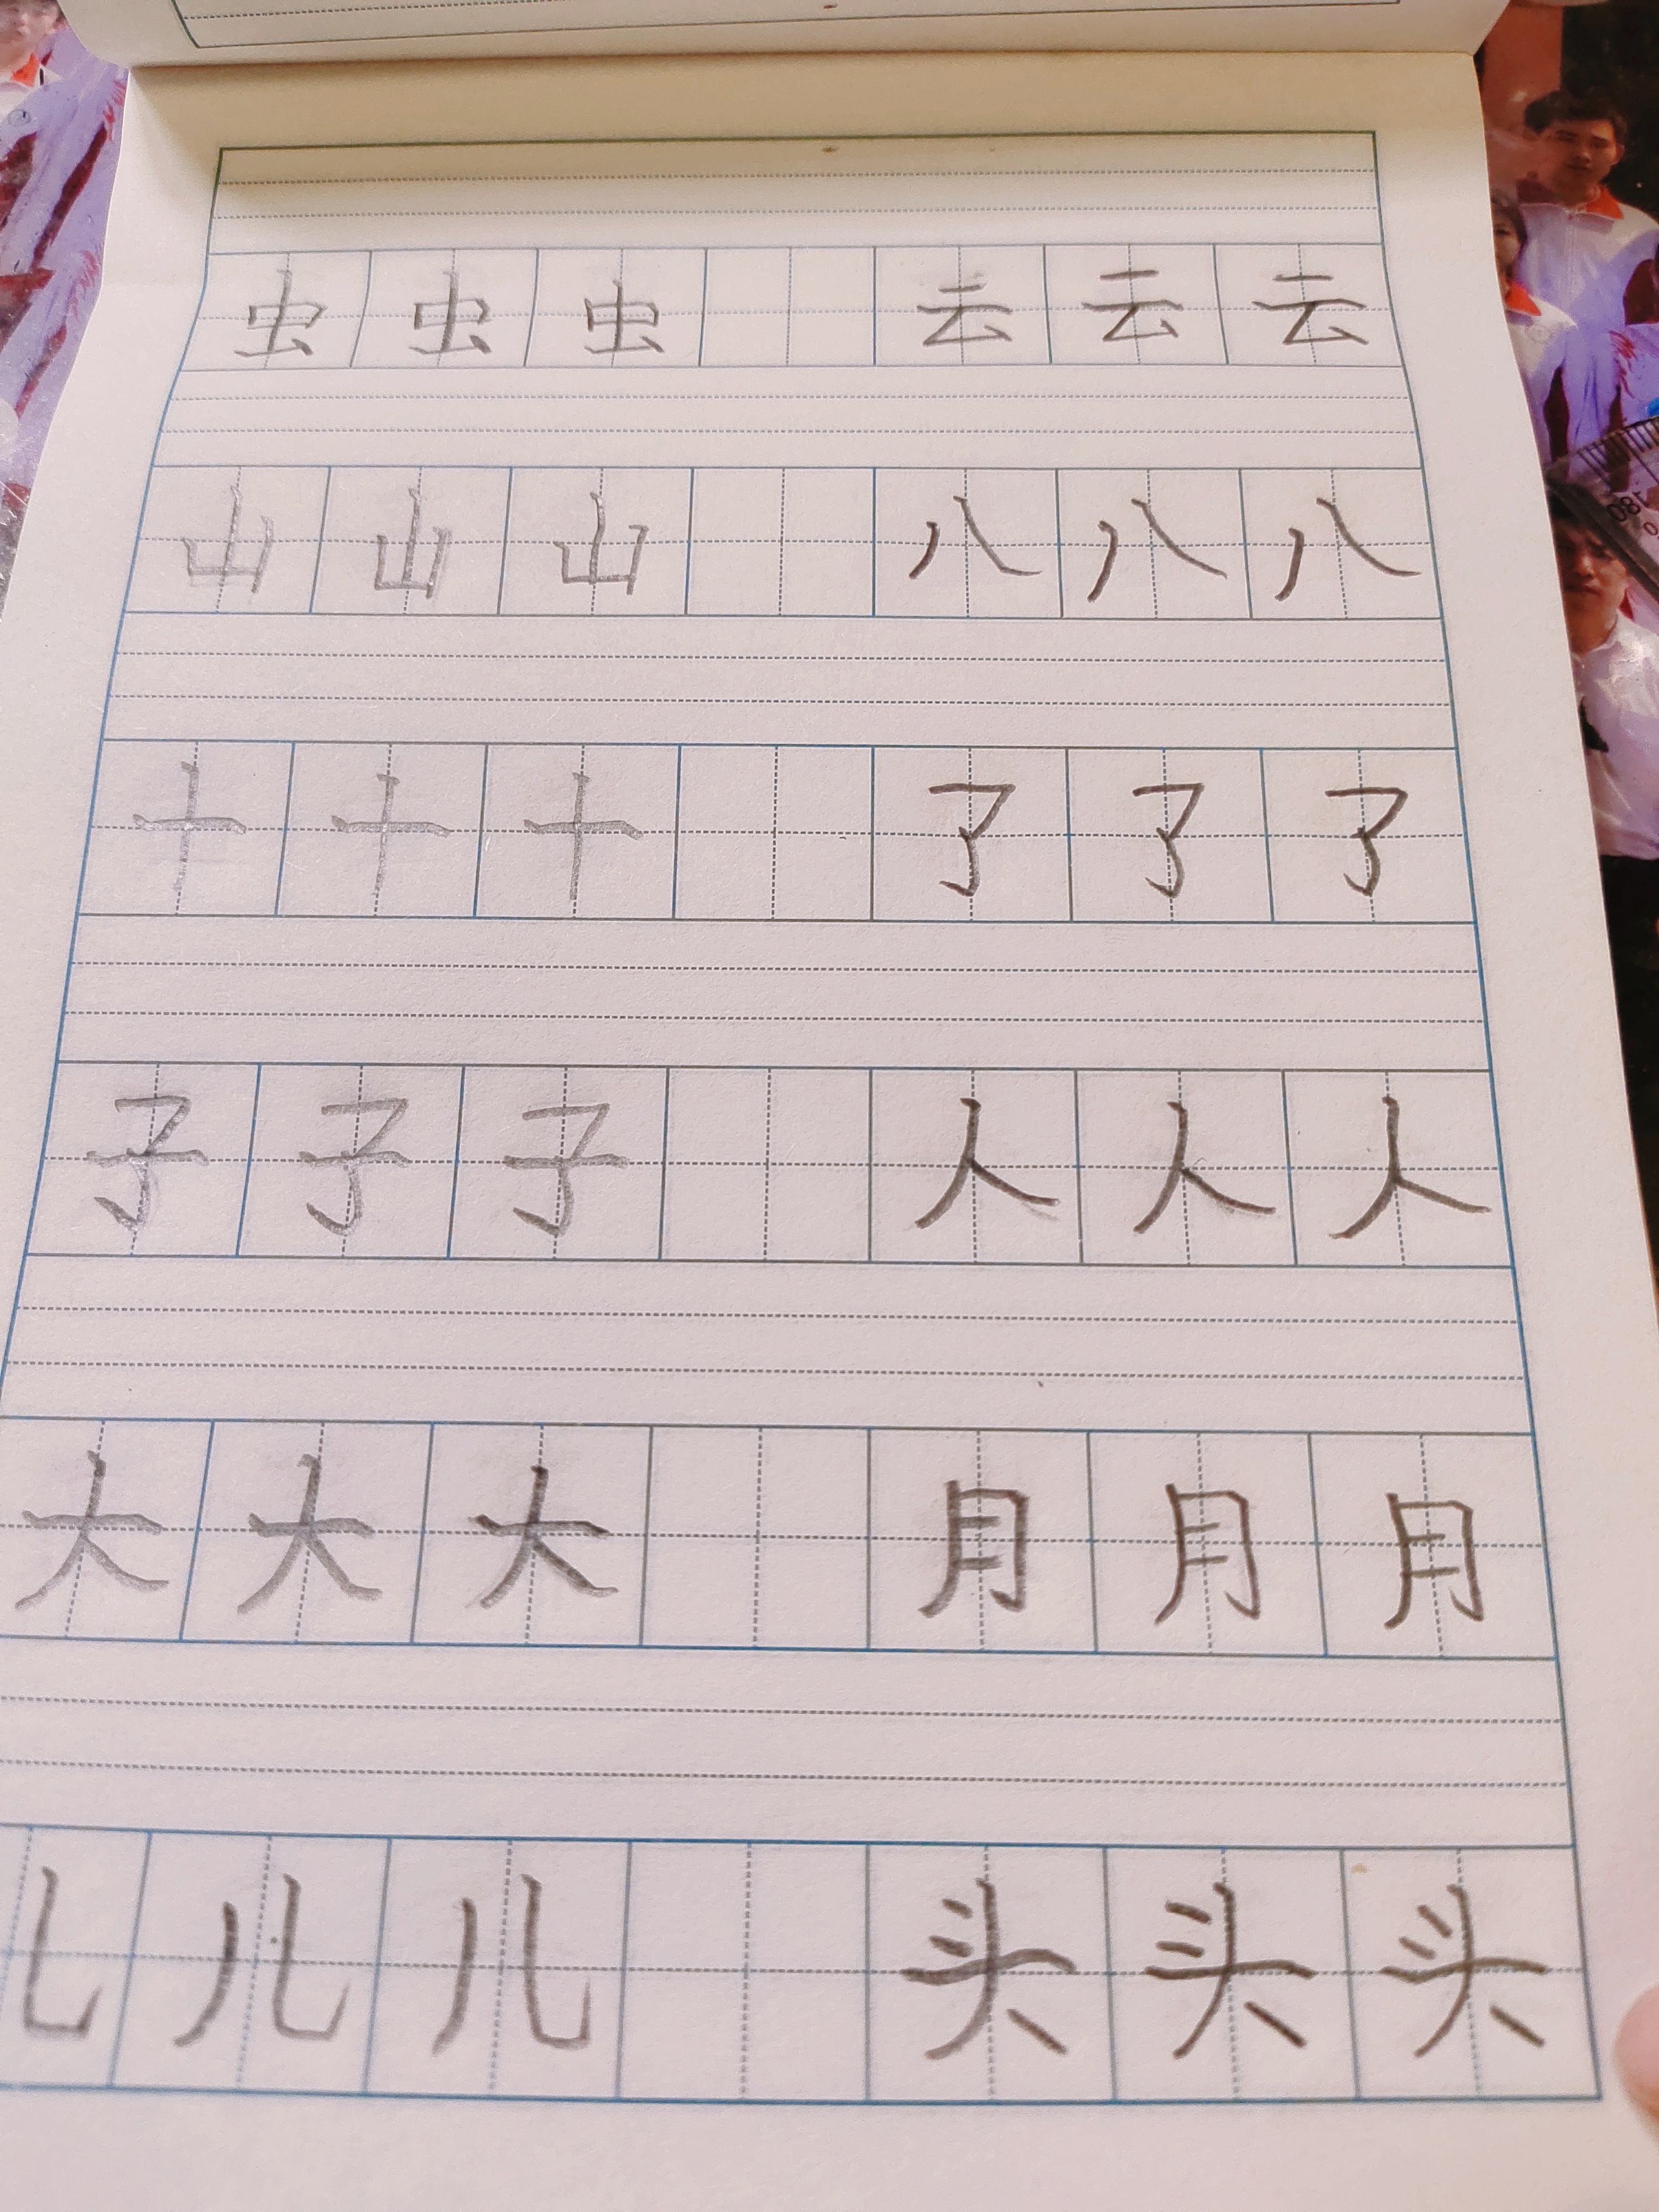 虫 虫 虫 云 云 云
山 山 山 八 八 八
十 十 十 了 了 了
子 子 子 人 人 人
大 大 大 月 月 月
儿 儿 儿 头 头 头